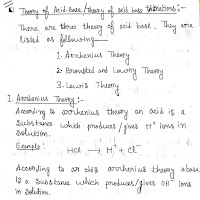 Theory of Acid-Base/theory of acid base titrations:-
There are three theory of acid base. They are
listed as following—
1. Arrhenius Theory
2. Bronsted and Lowry Theory
3. Lewis Theory
I. Arrhenius Theory:-
According to arrhenius theory an acid is a
substance which produces/gives H+ ions in
solution.
Example:
HCl → H+ + Cl-
According to arrhenius theory a base
is a substance which produces/gives OH- ions
in solution.